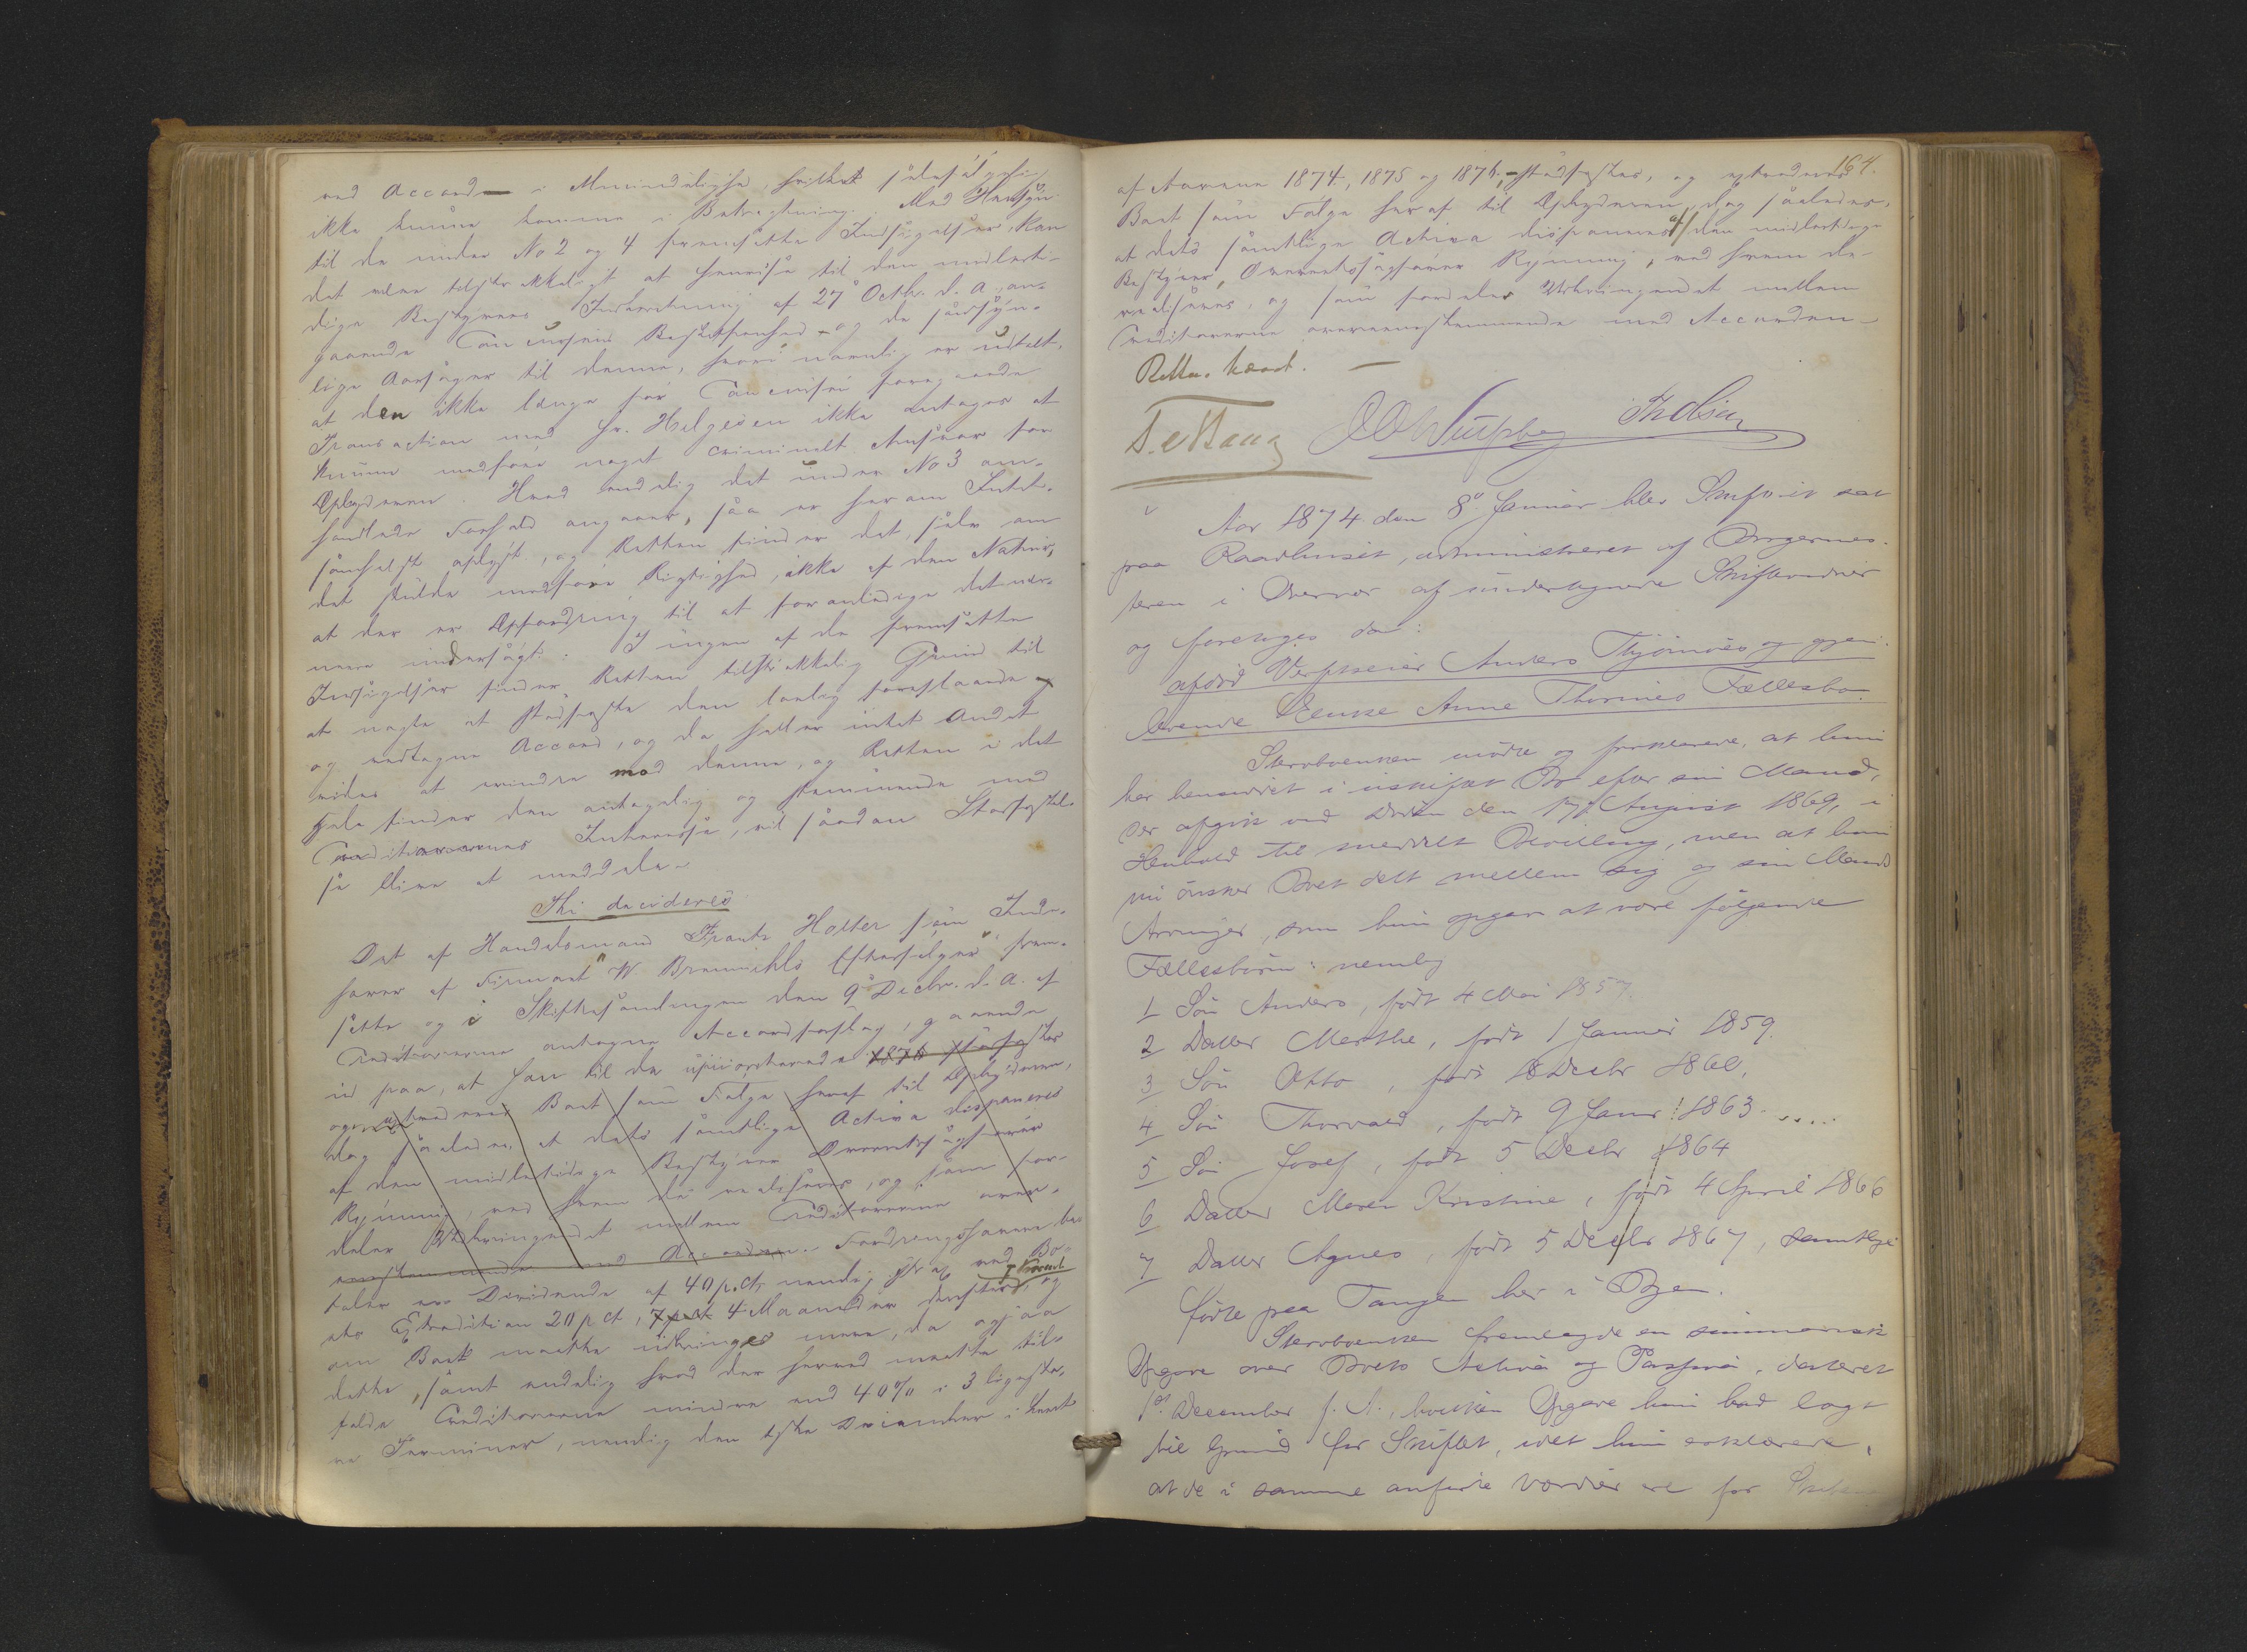 ved Accord – i Almindelighed, hvilket selvfølgelig
ikke kunne komme i Betragtning. Med Hensyn
til de under No 2 og 4 fremsatte Indsigelser, kan
det være tilstrækkeligt at henvise til den midlerti-
dige Bestyrers Indberetning af 27de Octbr. d. A. an-
gaaende Concursens Beskaffenhed – og de sandsyn-
lige Aarsager til denne, hvori navnlig er udtalt,
at den ikke længe før Concursen foregaaede
Transaction med Hr. Helgesen ikke antages at
kunne medføre noget criminelt Ansvar for
Opbyderen. Hvad endelig det under No 3 om-
handlede Forhold angaaer, saa er herom Intet
somhelst oplyst, og Retten finder det, selv om
det skulde medføre Rigtighed, ikke af den Natur,
at der er Opfordring til at foranledige det nær-
mere undersøgt. I ingen af de fremsatte
Indsigelser finder Retten tilstrækkelig Grund til
at negte at stadfæste den lovlig foreslaaede
og vedtagne Accord, og da heller intet Andet
vides at erindre mod denne, og Retten i det
Hele finder den antagelig og stemmende med
Creditorernes Interesse, vil saadan Stadfæstel-
se blive at meddele –
Thi decideres
Det af Handelsmand Frantz Holter som Inde-
haver af Firmaet "W. Brennichls Efterfølger" frem-
satte og i Skiftesamlingen den 9de Decbr. d. A. af
Creditorerne antagne Accordforslag, gaaende
ud paa, at han til de uprioriterede 1876 stadfæstes
og extraderes Boet som Følge heraf til Opbyderen,
dog saaledes, at dets samtlige Activa disponeres
af den midlertidige Bestyrer Overretssagfører
Rynning, ved hvem de realiseres, og som for-
deler Udbringendet mellem Creditorerne over-
ensstemmende med Accorden. – Fordringshavere be-
taler en Dividende af 40 p.Ct, nemlig ved Bo-
ets Extradition 20 p Ct, 4 Maaneder derefter, og
om Boet maatte udbringes mere, da ogsaa
dette, samt endelig hvad der herved maatte til-
falde Creditorerne mindre end 40% i 3 ligesto-
re Terminer, nemlig den 1ste December i hvert
164.
af Aarene 1874, 1875 og 1876, – stadfæstes, og extraderes
Boet som Følge heraf til Opbyderen, dog saaledes,
at dets samtlige Activa disponeres af den midlertidige
Bestyrer, Overretssagfører Rynning, ved hvem de
realiseres, og som fordeler Udbringendet mellem
Creditorerne overensstemmende med Accorden –
Retten hævet. –
Aar 1874 den 8de Januar blev Skifteret sat
paa Raadhuset, administreret af Borgermes-
teren i Overvær af undertegnede Skiftevidner
og foretoges da:
afdød Værftseier Anders Thjømøes og gjen-
levende Enke Anne Thorines Fællesbo.
Stervboenken mødte og forklarede, at hun
har hensiddet i uskiftet Bo efter sin Mand,
der afgik ved Døden den 17de August 1869, i
Henhold til meddelt Bevilling, men at hun
nu ønsker Boet delt mellem sig og sin Mands
Arvinger, som hun opgav at være følgende
Fællesbørn: nemlig
1 Søn Anders, født 4 Mai 1857.
2 Datter Marthe, født 1 Januar 1859.
3 Søn Otto, født 18 Decbr 1860,
4 Søn Thorvald, født 9 Janr 1863.....
5 Søn Josef, født 5 Decbr 1864
6 Datter Maren Kristine, født 4 April 1866
7 Datter Agnes, født 5 Decbr 1867, samtlige
fødte paa Tangen her i Byen.
Stervboenken fremlagde en summarisk
Opgave over Boets Activa og Passiva, dateret
1st December f. A., hvilken Opgave hun bad lagt
til Grund for Skiftet, idet hun erklærede,
at de i samme anførte Værdier ere for